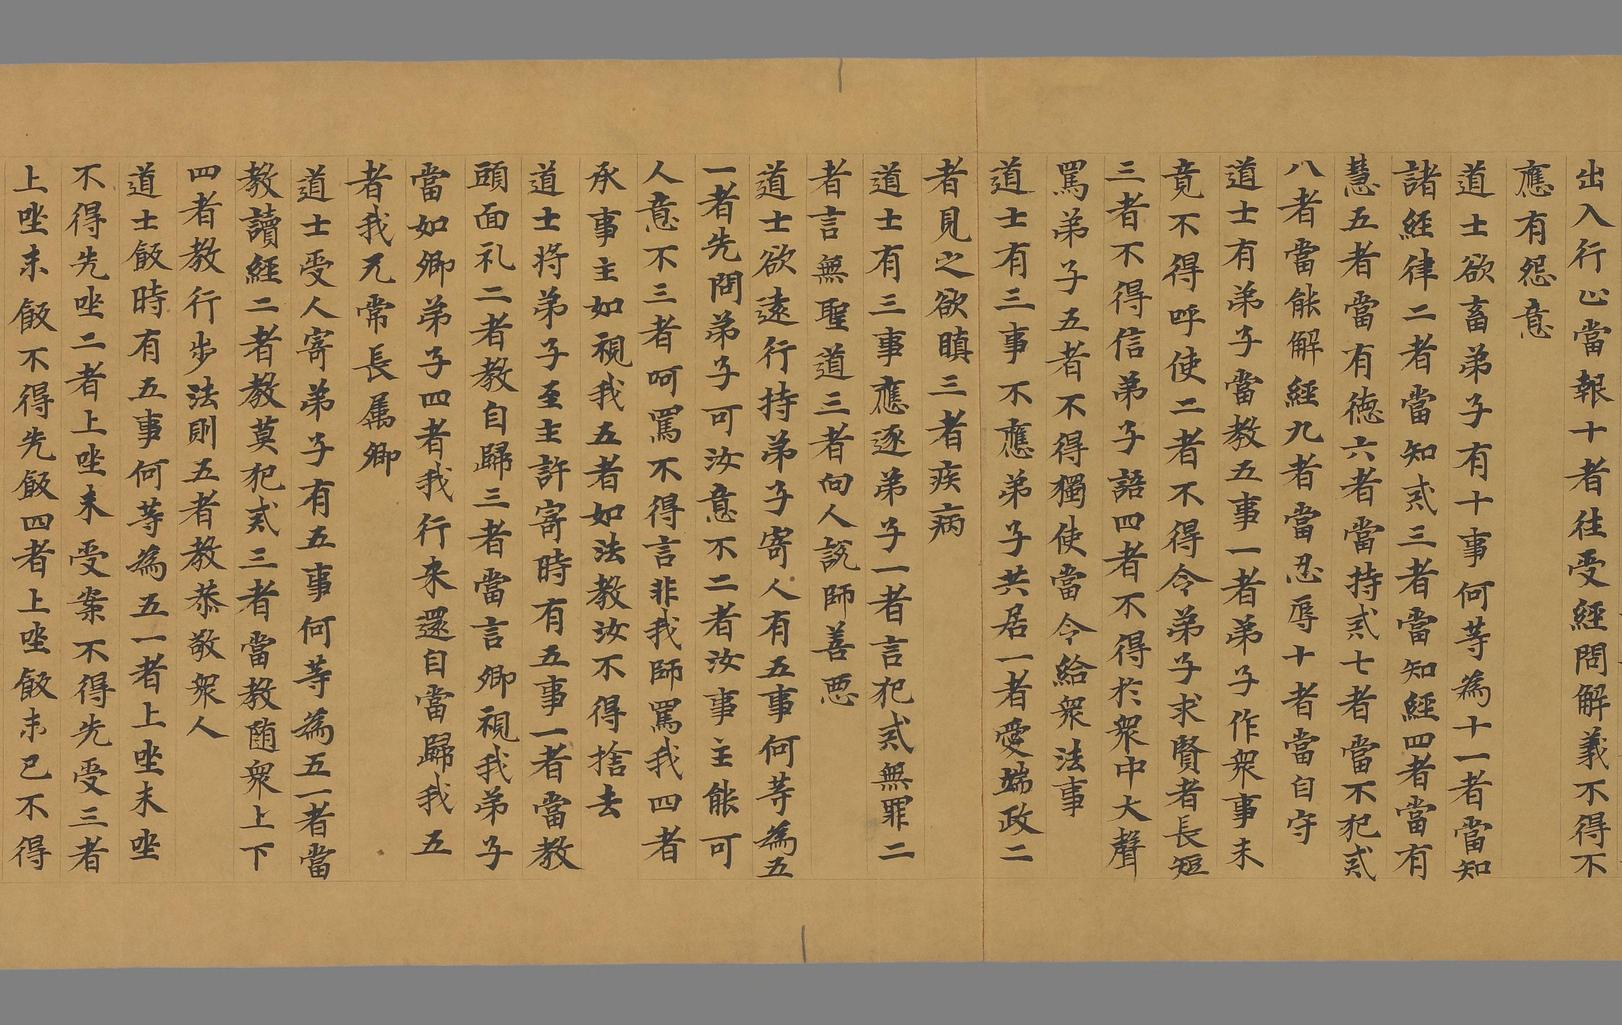 出入行止當報十者往受經問解義不得不
應有怨意
道士欲畜弟子有十事何等為十一者當知
諸經律二者當知貳三者當知經四者當有
慧五者當有徳六者當持貳七者當不犯貳
八者當能解經九者當忍辱十者當自守
道士有弟子當教五事一者弟子作衆事未
竟不得呼使二者不得令弟子求賢者長短
三者不得信弟子語四者不得於衆中大聲
罵弟子五者不得獨使當令給衆法事
道士有三事不應弟子共居一者愛端政二
者見之欲瞋三者疾病
道士有三事應逐弟子一者言犯貳無罪二
者言無聖道三者向人說師善惡
道士欲遠行持弟子寄人有五事何等為五
一者先問弟子可汝意不二者汝事主能可
人意不三者呵罵不得言非我師罵我四者
承事主如視我五者如法教汝不得捨去
道士將弟子至主許寄時有五事一者當教
頭面礼二者教自歸三者當言卿視我弟子
當如卿弟子四者我行來還自當歸我五
者我死常長属卿
道士受人寄弟子有五事何等為五一者當
教讀經二者教莫犯貳三者當教随衆上下
四者教行步法則五者教恭敬衆人
道士飯時有五事何等為五一者上坐未坐
不得先坐二者上坐未受案不得先受三者
上坐未飯不得先飯四者上坐飯未已不得